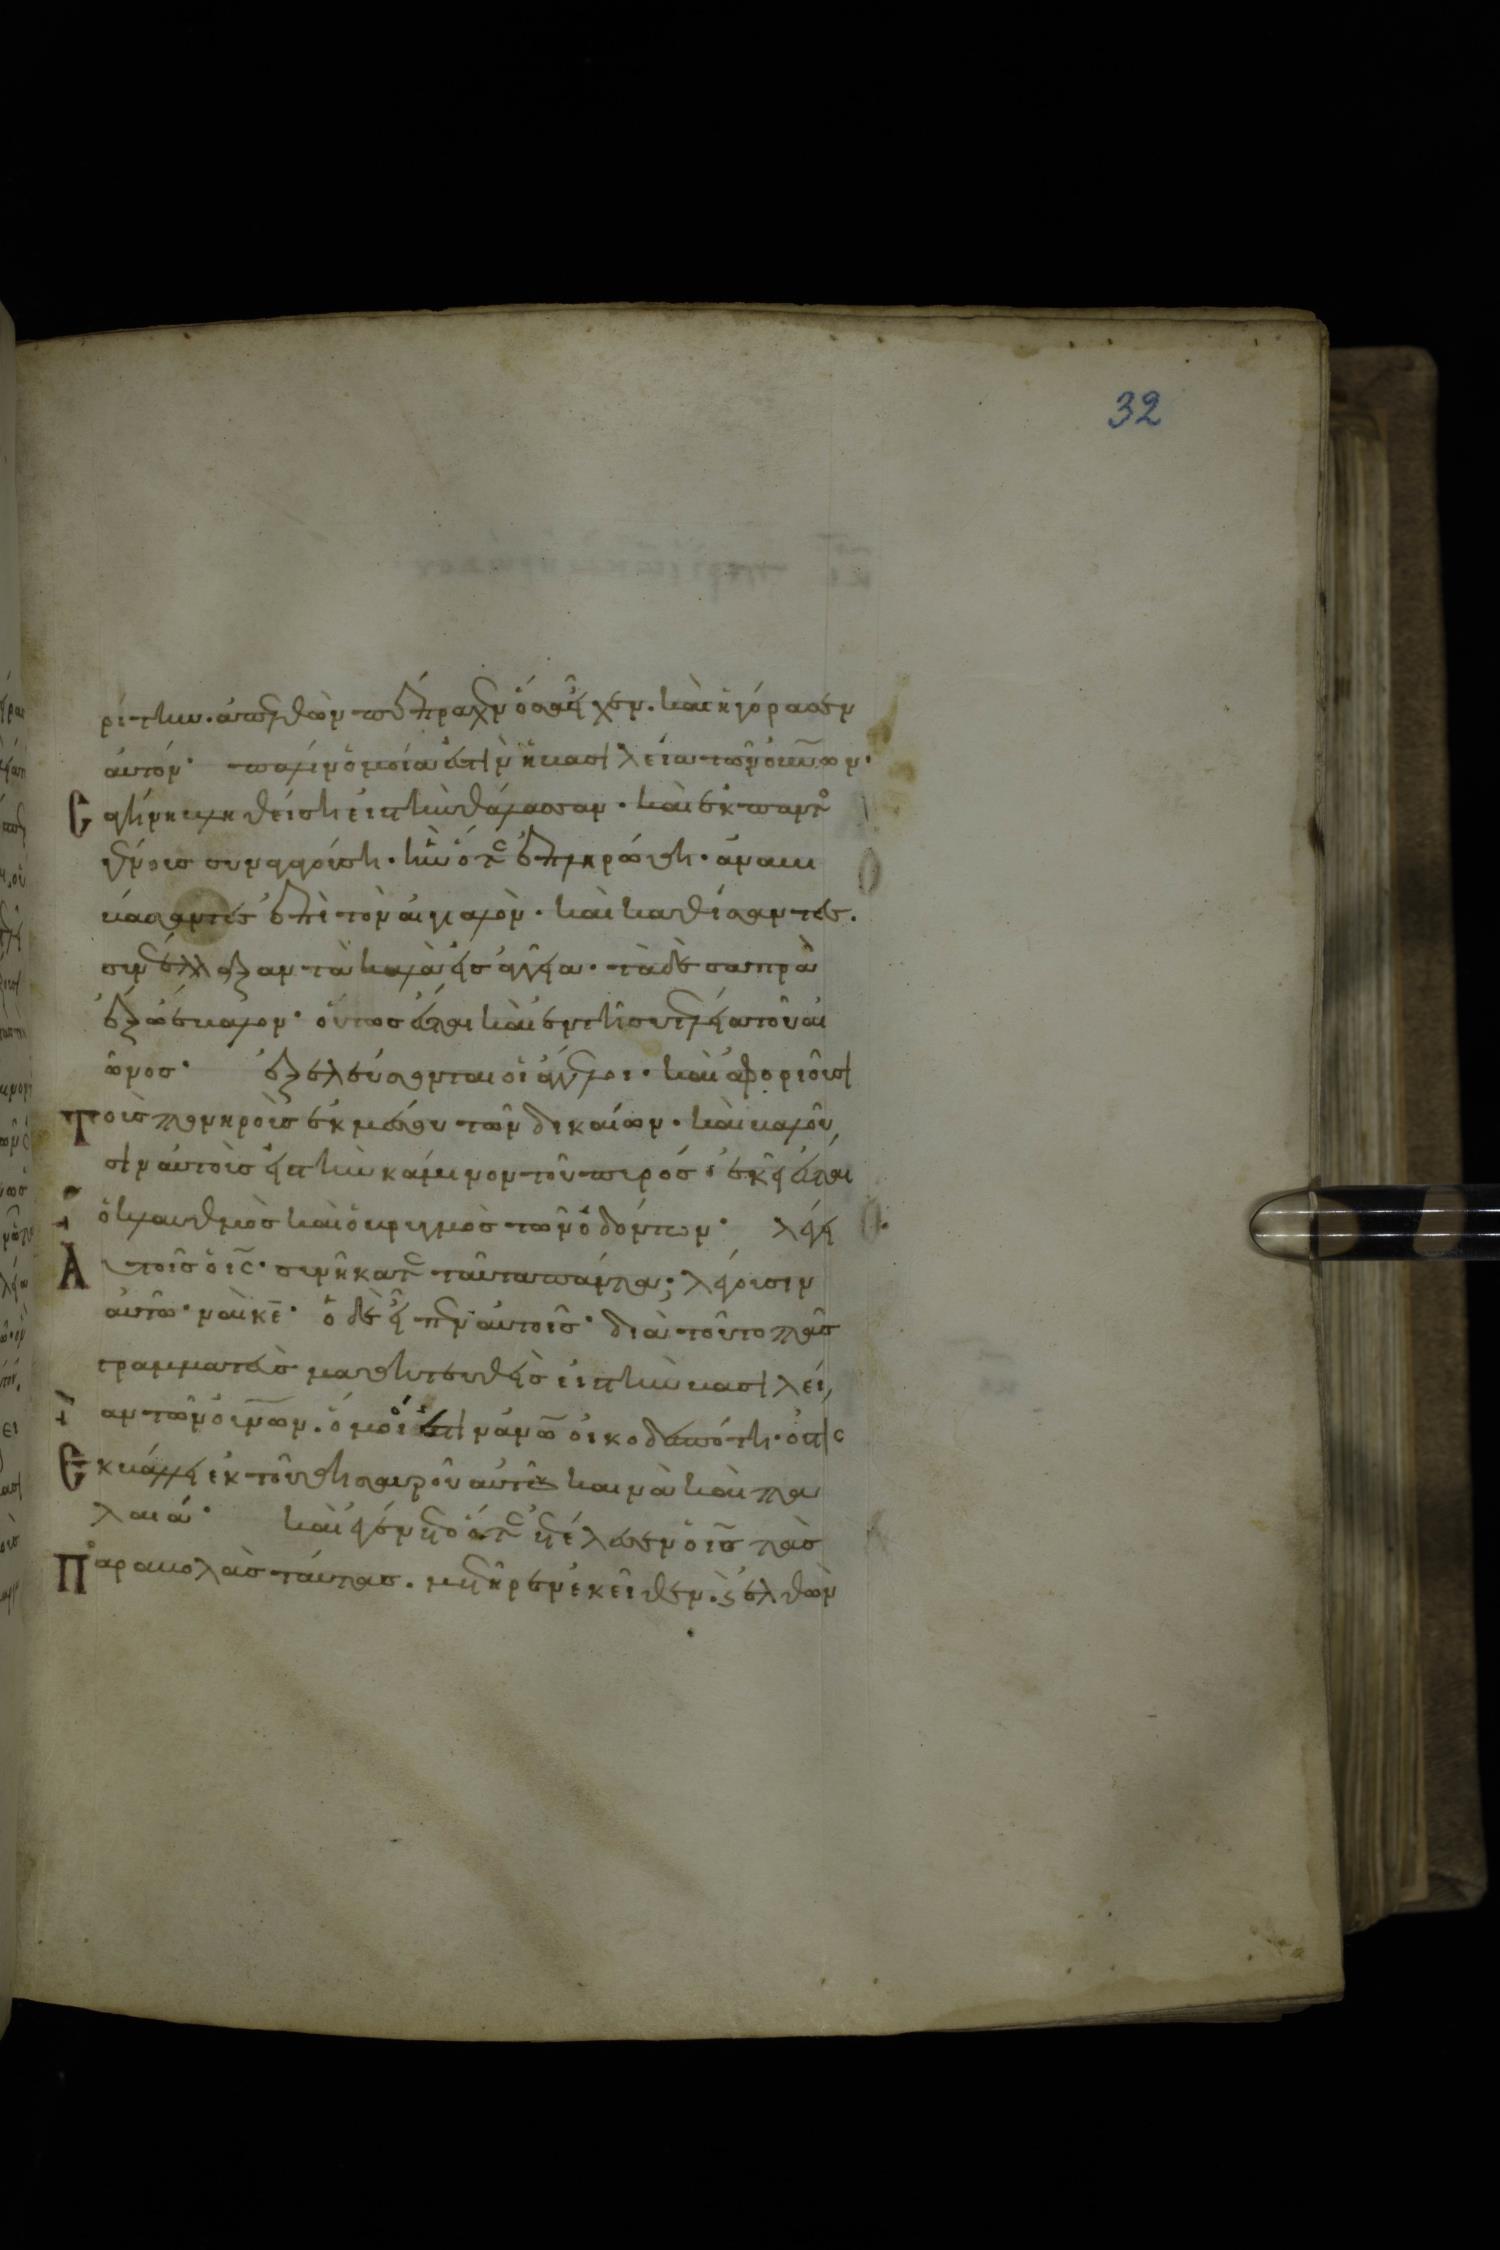 32
ρίτην. ἀπελθὼν πέπραχεν ὅσα εἶχεν. καὶ ἠγόρασεν
αὐτόν· πάλιν ὁμοία ἐστὶν ἡ βασιλεία τῶν οὐνῶν·
σαγήνη βληθείση εἰς τὴν θάλασσαν· καὶ ἐκ παντ
γένους συναγούση· ἣν ὅτε ἐπληρώθη· ἀναβι
βάσαντες ἐπὶ τὸν αἰγιαλὸν· καὶ καθίσαντες.
συνέλλεξαν τὰ καλὰ εἰς ἀγγεῖα· τὰ δὲ σαπρὰ
ἔξω ἔβαλον· οὕτως ἔσται καὶ ἐν τῆ συντελεία τοῦ αἰ
ῶνος· ἐξελεύσονται οἱ ἄγγελοι· καὶ ἀφοριοῦσι
τοὺς πονηροὺς ἐκ μέσου τῶν δικαίων· καὶ βαλοῦ
σιν αὐτοὺς εἰς τὴν κάμινον τοῦ πυρός· ἐκεῖ ἔσται
ὁ κλαυθμὸς καὶ ὁ βρυγμὸς τῶν ὀδόντων· λέγει
Αὐτοῖς ὁ ις· συνήκατε ταῦτα πάντα; λέγουσιν
αὐτῶ· ναὶ κε· ὁ δὲ εἶπεν αὐτοῖς· διὰ τοῦτο πᾶς
γραμματεὺς μαθητευθεὶς εἰς τὴν βασιλεί
αν τῶν οὐνῶν. ὅμοιός ἐστιν ἀνω οἰκοδεσπότη· ὅστις
Ἐκβάλλει ἐκ τοῦ θησαυροῦ αὐτοῦ καινὰ καὶ πα
λαιά· καὶ ἐγένετο ὅτε ἐτέλεσεν ὁ ις τὰς
Παραβολὰς ταύτας. μετῆρεν ἐκεῖθεν. ἐλθὼν